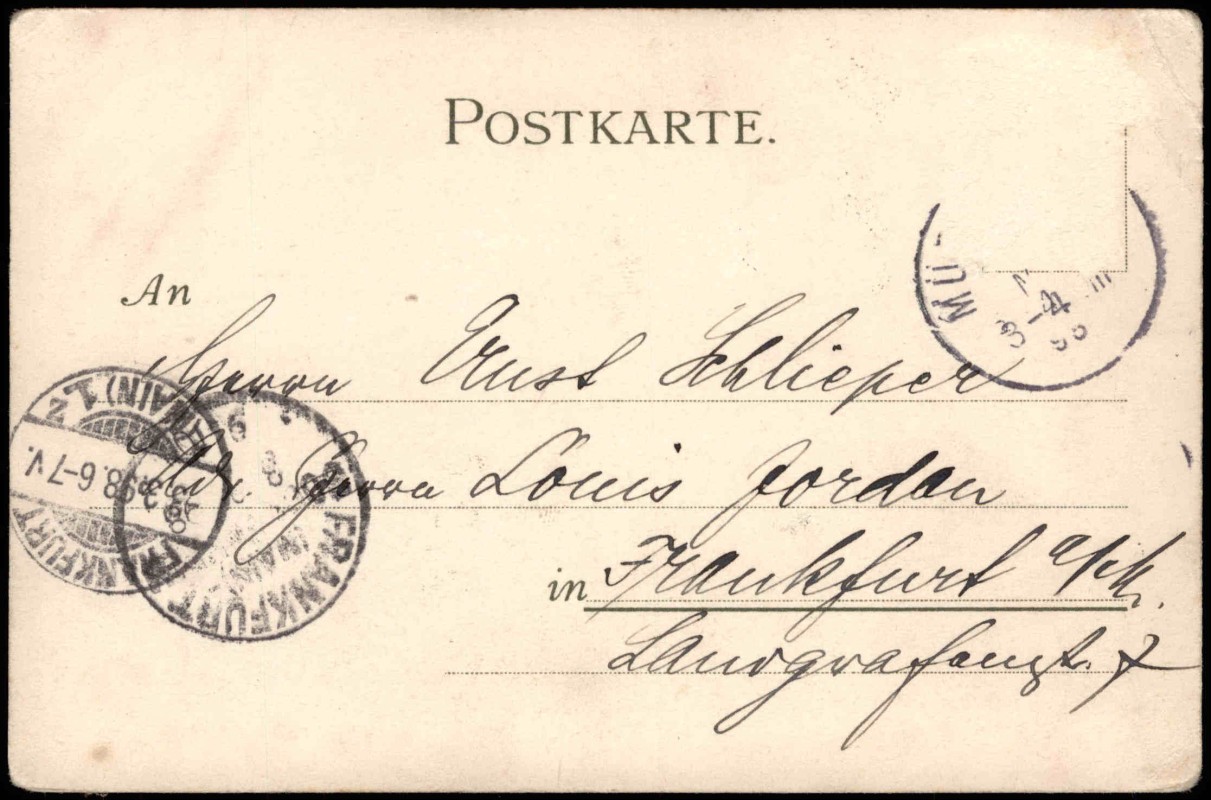 POSTKARTE.
An
Herrn Ernst Schlieper
Adr. Herrn Louis Jordan
in Frankfurt a/M.
Landgrafenst. 7
MÜ
FRANKFURT (MAIN) 1
98. 6-7 V.
FRANKFURT (MAIN)